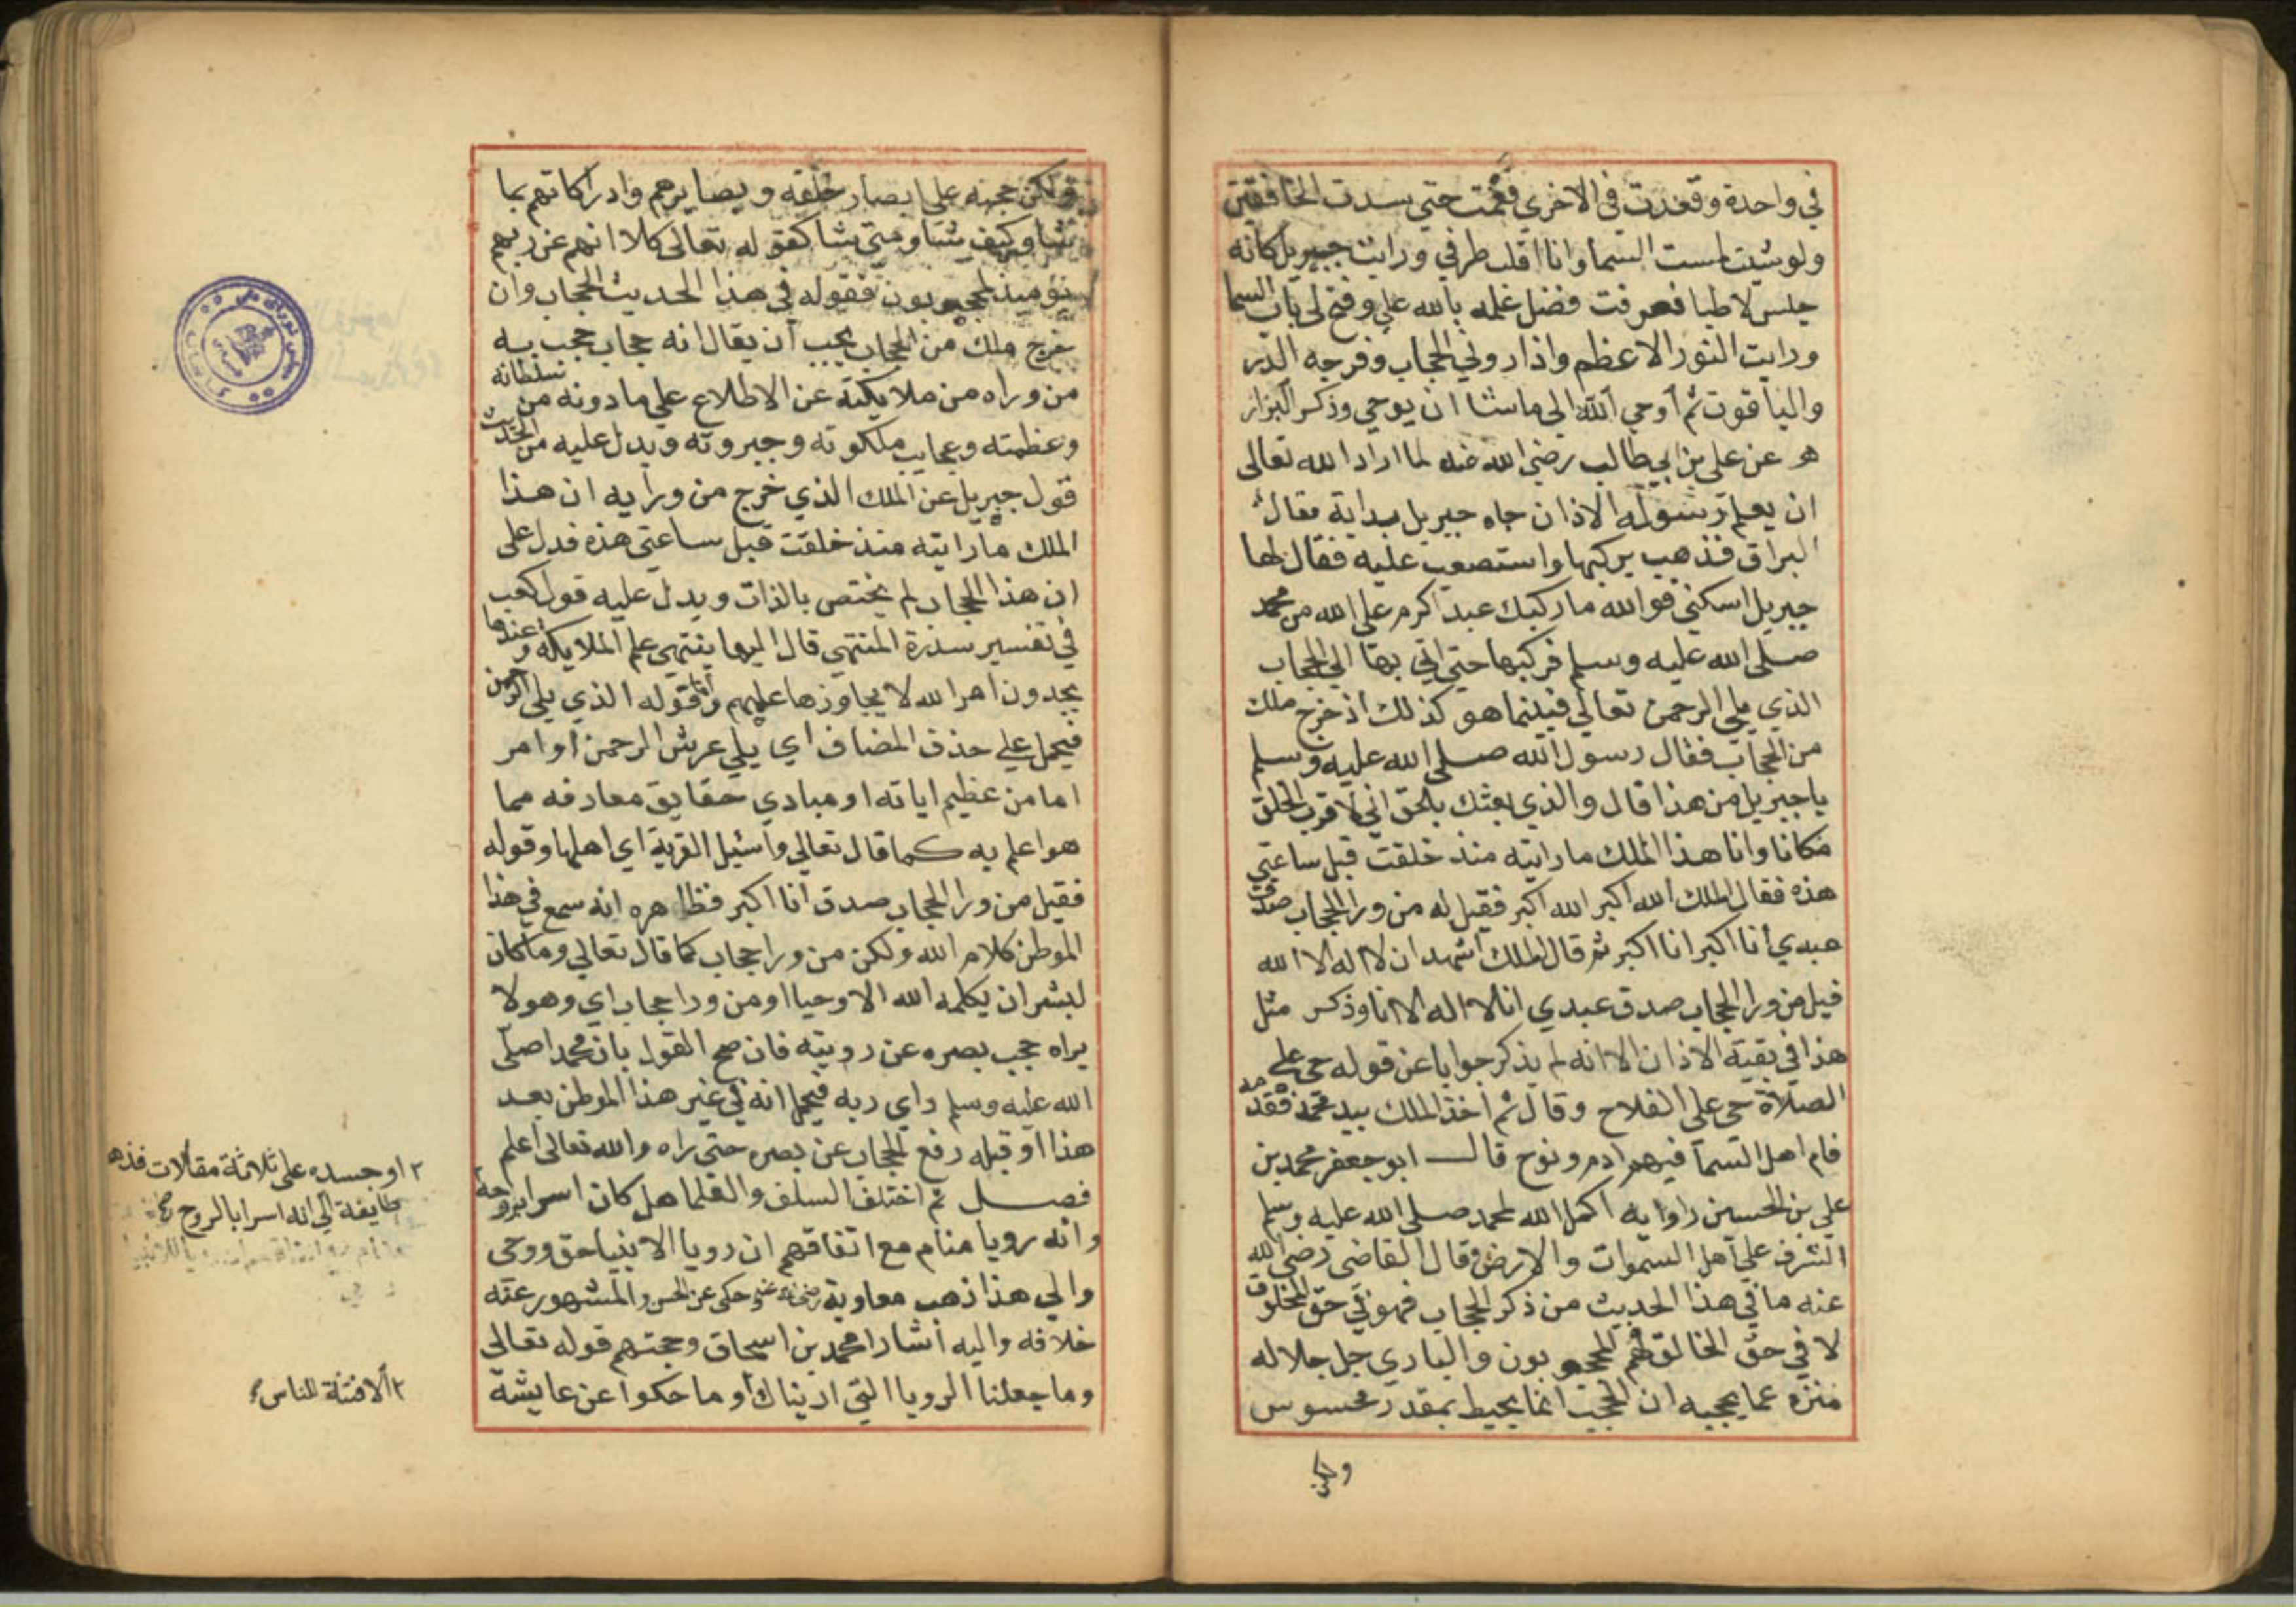 في واحدة وقعدت في الاخري فنمت حتي سدت الخافقين
ولو شيت لمست السما وانا اقلب طرفي ورايت جبريل كانه
حلس لاطيا فعرفت فضل علمه بالله علي وفتح لي باب السما
ورايت النور الاعظم واذا دوني الحجاب وفرجه الدر
والياقوت ثم اوحي الله الي ما شا ان يوحي وذكر البزار
هو عن علي بن ابي طالب رضي الله عنه لما اراد الله تعالى
ان يعلم رسوله الاذان جاه جبريل بداية يقال
البراق فذهب يركبها واستصعبت عليه فقال لها
جبريل اسكني فوالله ما ركبك عبد اكرم علي الله من محمد
صلى الله عليه وسلم فركبها حتي اتي بها الي الحجاب
الذي يلي الرحمن تعالى فبينما هو كذلك اذ خرج ملك
من الحجاب فقال رسول الله صلى الله عليه وسلم
يا جبريل من هذا قال والذي بعثك بالحق اني لاقرب الخلق
مكانا وانا هذا الملك ما رايته منذ خلقت قبل ساعتي
هذه فقال الملك الله اكبر الله اكبر فقيل له من ورا الحجاب صدق
عبدي أنا اكبر انا اكبر ثم قال الملك أشهد ان لا اله الا الله
قيل من ورا الحجاب صدق عبدي انا لا اله الا انا وذكر مثل
هذا في بقية الاذان الا انه لم يذكر جوابا عن قوله حي علي
الصلاة حي علي الفلاح وقال ثم اخذ الملك بيد محمد فقدمه
فام اهل السمآ فيهم ادم ونوح قال ابو جعفر محمد بن
علي بن الحسين راويه اكمل الله لمحمد صلى الله عليه وسلم
الشرف علي اهل السموات والارض وقال القاضى رضي الله
عنه ما في هذا الحديث من ذكر الحجاب فهو في حق المخلوق
لا في حق الخالق فهم المحجوبون والباري جل جلاله
منزه عما يحجبه ان الحجب انما يحيط بمقدر محسوس
ولكن
ولكن حجبه علي ابصار خلقه وبصايرهم وادراكاتهم بما
شا وكيف شا ومتي شا كقوله تعالى كلا انهم عن ربهم
يوميذ لمحجوبون فقوله في هذا الحديث الحجاب وان
خرج ملك من الحجاب يجب أن يقال انه حجاب حجب به
من وراه من ملايكته عن الاطلاع علي ما دونه من سلطانه
وعظمته وعجايب ملكوته وجبروته ويدل عليه من الحديث
قول جبريل عن الملك الذي خرج من ورايه ان هذا
الملك ما رايته منذ خلقت قبل ساعتي هذه فدل على
ان هذا الحجاب لم يختص بالذات ويدل عليه قول كعب
في تفسير سدرة المنتهي قال اليها ينتهي علم الملايكة وعندها
يجدون امر الله لا يجاوزها علمهم وأما قوله الذي يلي الرحمن
فيحمل علي حذف المضاف اي يلي عرش الرحمن أو امر
اما من عظيم اياته او مبادي حقايق معارفه مما
هو اعلم به كما قال تعالي واسئيل القرية اي اهلها وقوله
فقيل من ورا الحجاب صدق أنا اكبر فظاهره انه سمع في هذا
الموطن كلام الله ولكن من ورا حجاب كما قال تعالي وما كان
لبشر ان يكلمه الله الا وحيا او من ورا حجاب اي وهو لا
يراه حجب بصره عن رويته فان صح القول بان محمدا صلى
الله عليه وسلم راي ربه فيحمل انه في غير هذا الموطن بعد
هذا أو قبله رفع الحجاب عن بصره حتى راه والله تعالى أعلم
فصل ثم اختلف السلف والعلما هل كان اسرا بروحه
وانه رويا منام مع اتفاقهم ان رويا الانبيا حق ووحى
والي هذا ذهب معاوية رضي الله عنه وحكى عن الحسن والمشهور عنه
خلافه واليه أشار محمد بن اسحاق وحجتهم قوله تعالى
وما جعلنا الرويا التي اريناك وما حكوا عن عايشة
٢ او جسده على ثلاثة مقالات فذهب
طايفة الي انه اسرا بالروح
٢ ألا فتنة للناس